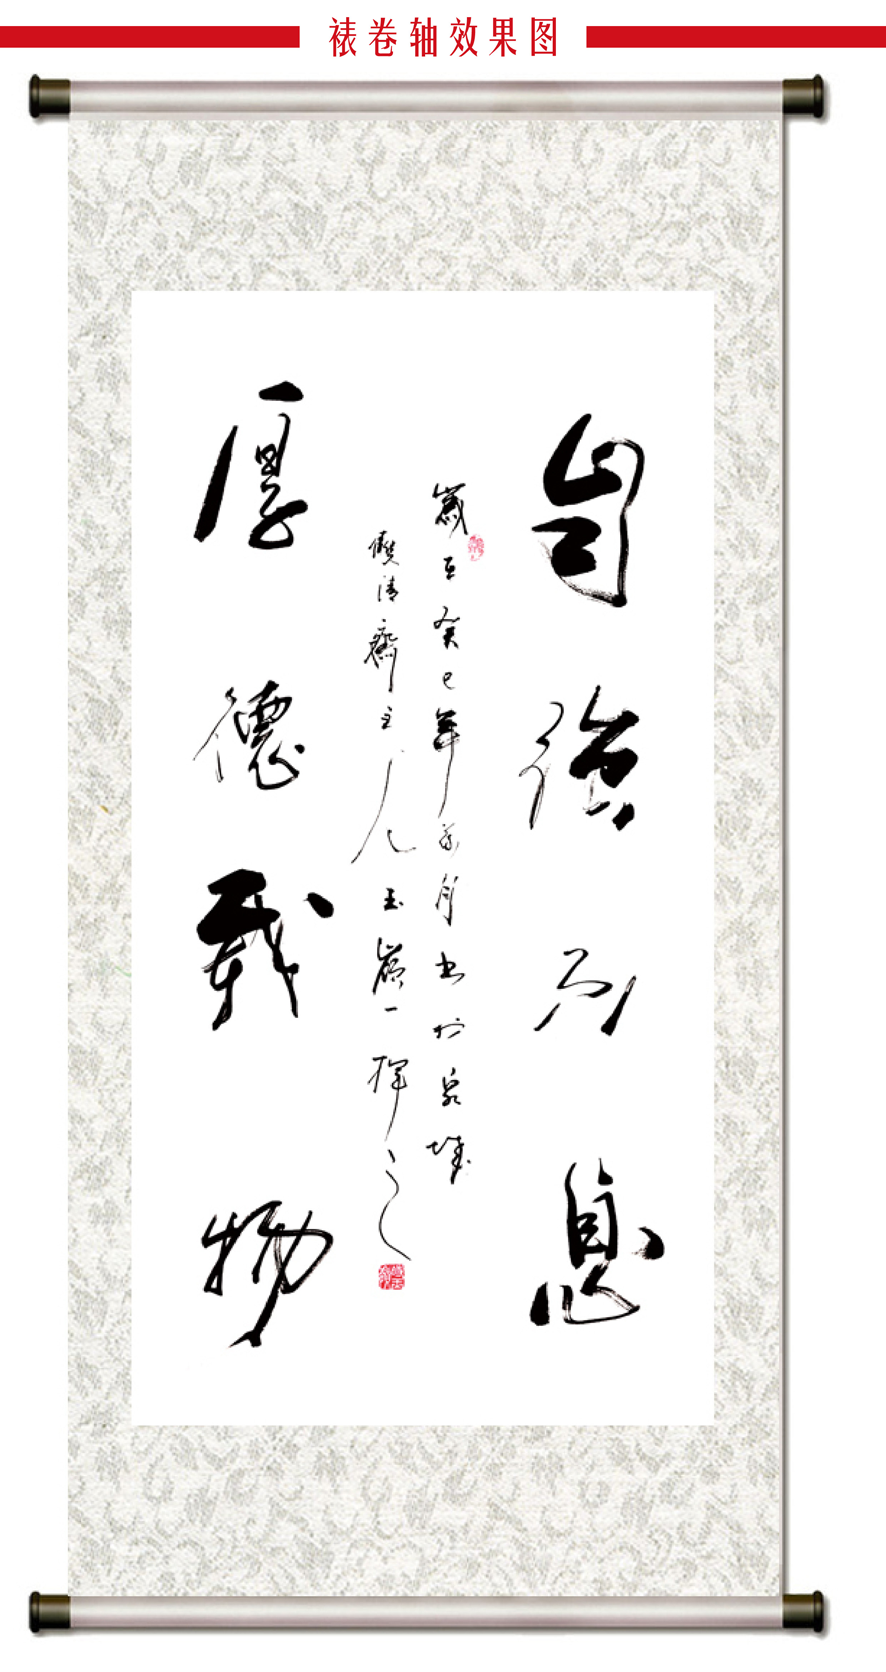 裱卷轴效果图
自强不息
厚德载物
岁在癸巳年 月书于泉城
清斋主人玉岭一挥之